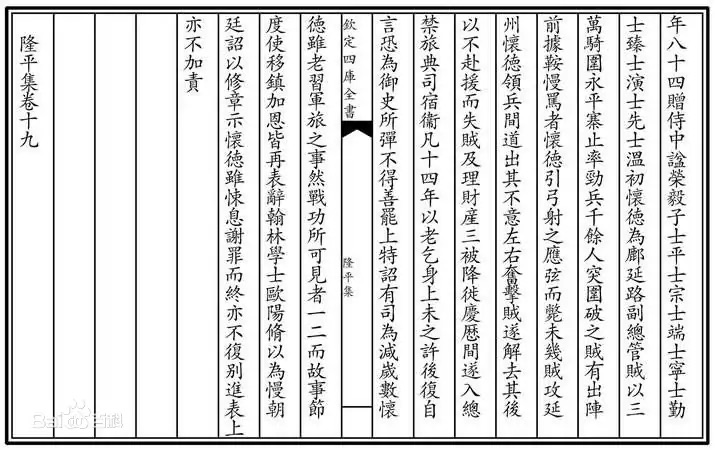 年八十四贈侍中諡榮毅子士平士宗士端士寧士勤
士臻士演士先士溫初懷徳為鄜延路副總管賊以三
萬騎圍永平寨止率勁兵千餘人突圍破之賊有出陣
前據鞍慢罵者懷徳引弓射之應弦而斃未幾賊攻延
州懷徳領兵間道出其不意左右奮擊賊遂解去其後
以不赴援而失賊及理財産三被降徙慶厯間遂入總
禁旅典司宿衞凡十四年以老乞身上未之許後復自
言恐為御史所彈不得善罷上特詔有司為減歲數懷
欽定四庫全書
隆平集
徳雖老習軍旅之事然戰功所可見者一二而故事節
度使移鎮加恩皆再表辭翰林學士歐陽脩以為慢朝
廷詔以修章示懷徳雖悚息謝罪而終亦不復别進表上
亦不加責
隆平集卷十九
Bai百科